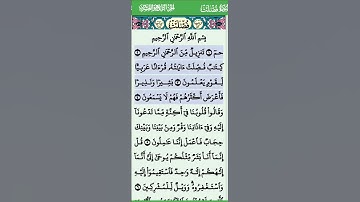 بِسْمِ ٱللَّهِ ٱلرَّحْمَٰنِ ٱلرَّحِيمِ
حمٓ ۝ تَنزِيلٌ مِّنَ ٱلرَّحْمَٰنِ ٱلرَّحِيمِ ۝
كِتَٰبٌ فُصِّلَتْ ءَايَٰتُهُۥ قُرْءَانًا عَرَبِيًّا
لِّقَوْمٍ يَعْلَمُونَ ۝ بَشِيرًا وَنَذِيرًا
فَأَعْرَضَ أَكْثَرُهُمْ فَهُمْ لَا يَسْمَعُونَ ۝
وَقَالُوا۟ قُلُوبُنَا فِىٓ أَكِنَّةٍ مِّمَّا تَدْعُونَآ
إِلَيْهِ وَفِىٓ ءَاذَانِنَا وَقْرٌ وَمِنۢ بَيْنِنَا وَبَيْنِكَ
حِجَابٌ فَٱعْمَلْ إِنَّنَا عَٰمِلُونَ ۝ قُلْ
إِنَّمَآ أَنَا۠ بَشَرٌ مِّثْلُكُمْ يُوحَىٰٓ إِلَىَّ أَنَّمَآ
إِلَٰهُكُمْ إِلَٰهٌ وَٰحِدٌ فَٱسْتَقِيمُوٓا۟ إِلَيْهِ
وَٱسْتَغْفِرُوهُ وَوَيْلٌ لِّلْمُشْرِكِينَ ۝